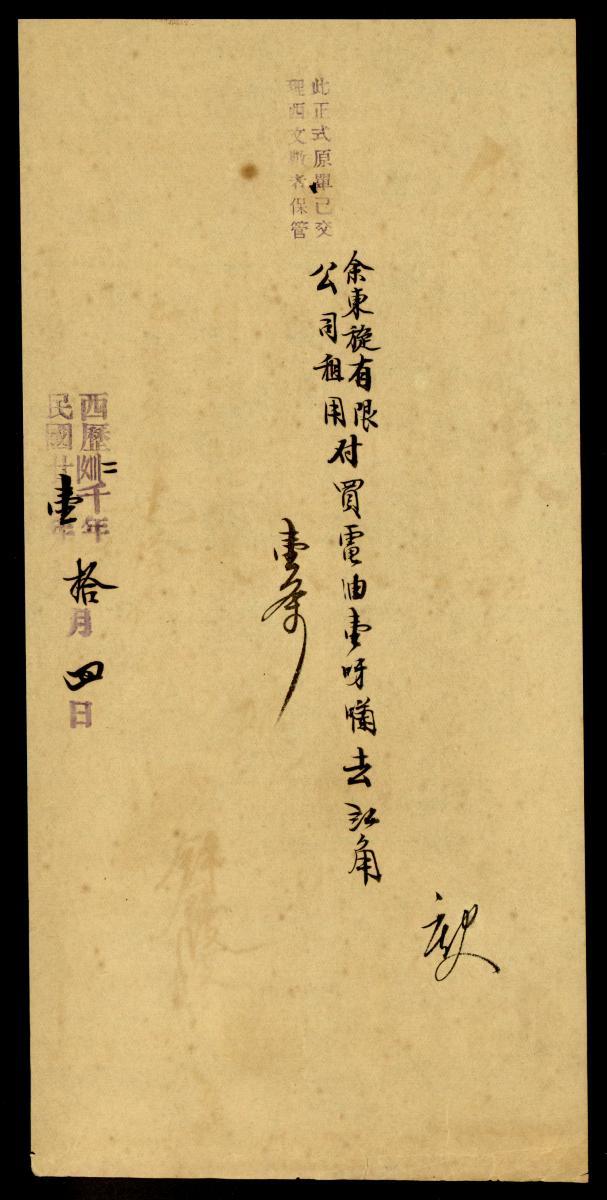 此正式原單已交
理西文數者保管
余東旋有限
公司租用付買電油壹呀㘔去
壹条
西歷 二千年
民國廿壹年 拾月四日